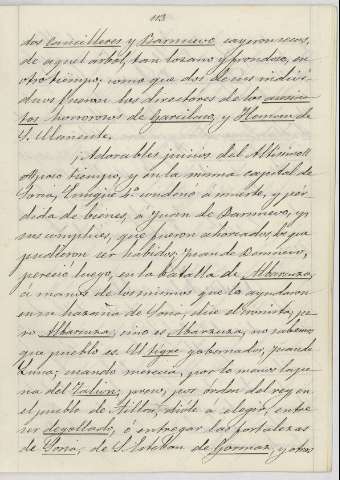 113
dos Cancilleres y Barnuevo, cayeron secos,
de aquel árbol, tan lozano y frondoso, en
otro tiempo; como que dos de sus indivi-
duos fueron los directores de los asesina-
tos horrorosos de Garcilaso, y Hernan de
S. Clemente.
¡Adorables juicios del Altísimo!!
tiempo, y en la misma capital de
Soria, Enrique 2.º condenó á muerte, y pér-
dida de bienes, á Juan de Barnuevo, y
sus cómplices, que fueron ahorcados, los que
pudieron ser habidos; Juan de Barnuevo,
pereció luego, en la batalla de Albarzuza,
á manos de los mismos que le ayudaron
en su hazaña de Soria, dice el ministro, pe-
ro Albarzuza, sino es Abarzuza, no sabemos
que pueblo es. El tigre gobernador, Juan de
Luna, mandó merecia, por lo menos la pe-
na del Talion; pero, por órden del rey en
el pueblo de diole á elegir, entre
ser degollado, ó entregar las fortalezas
de Soria, de S. Esteban de Gormaz, y otras